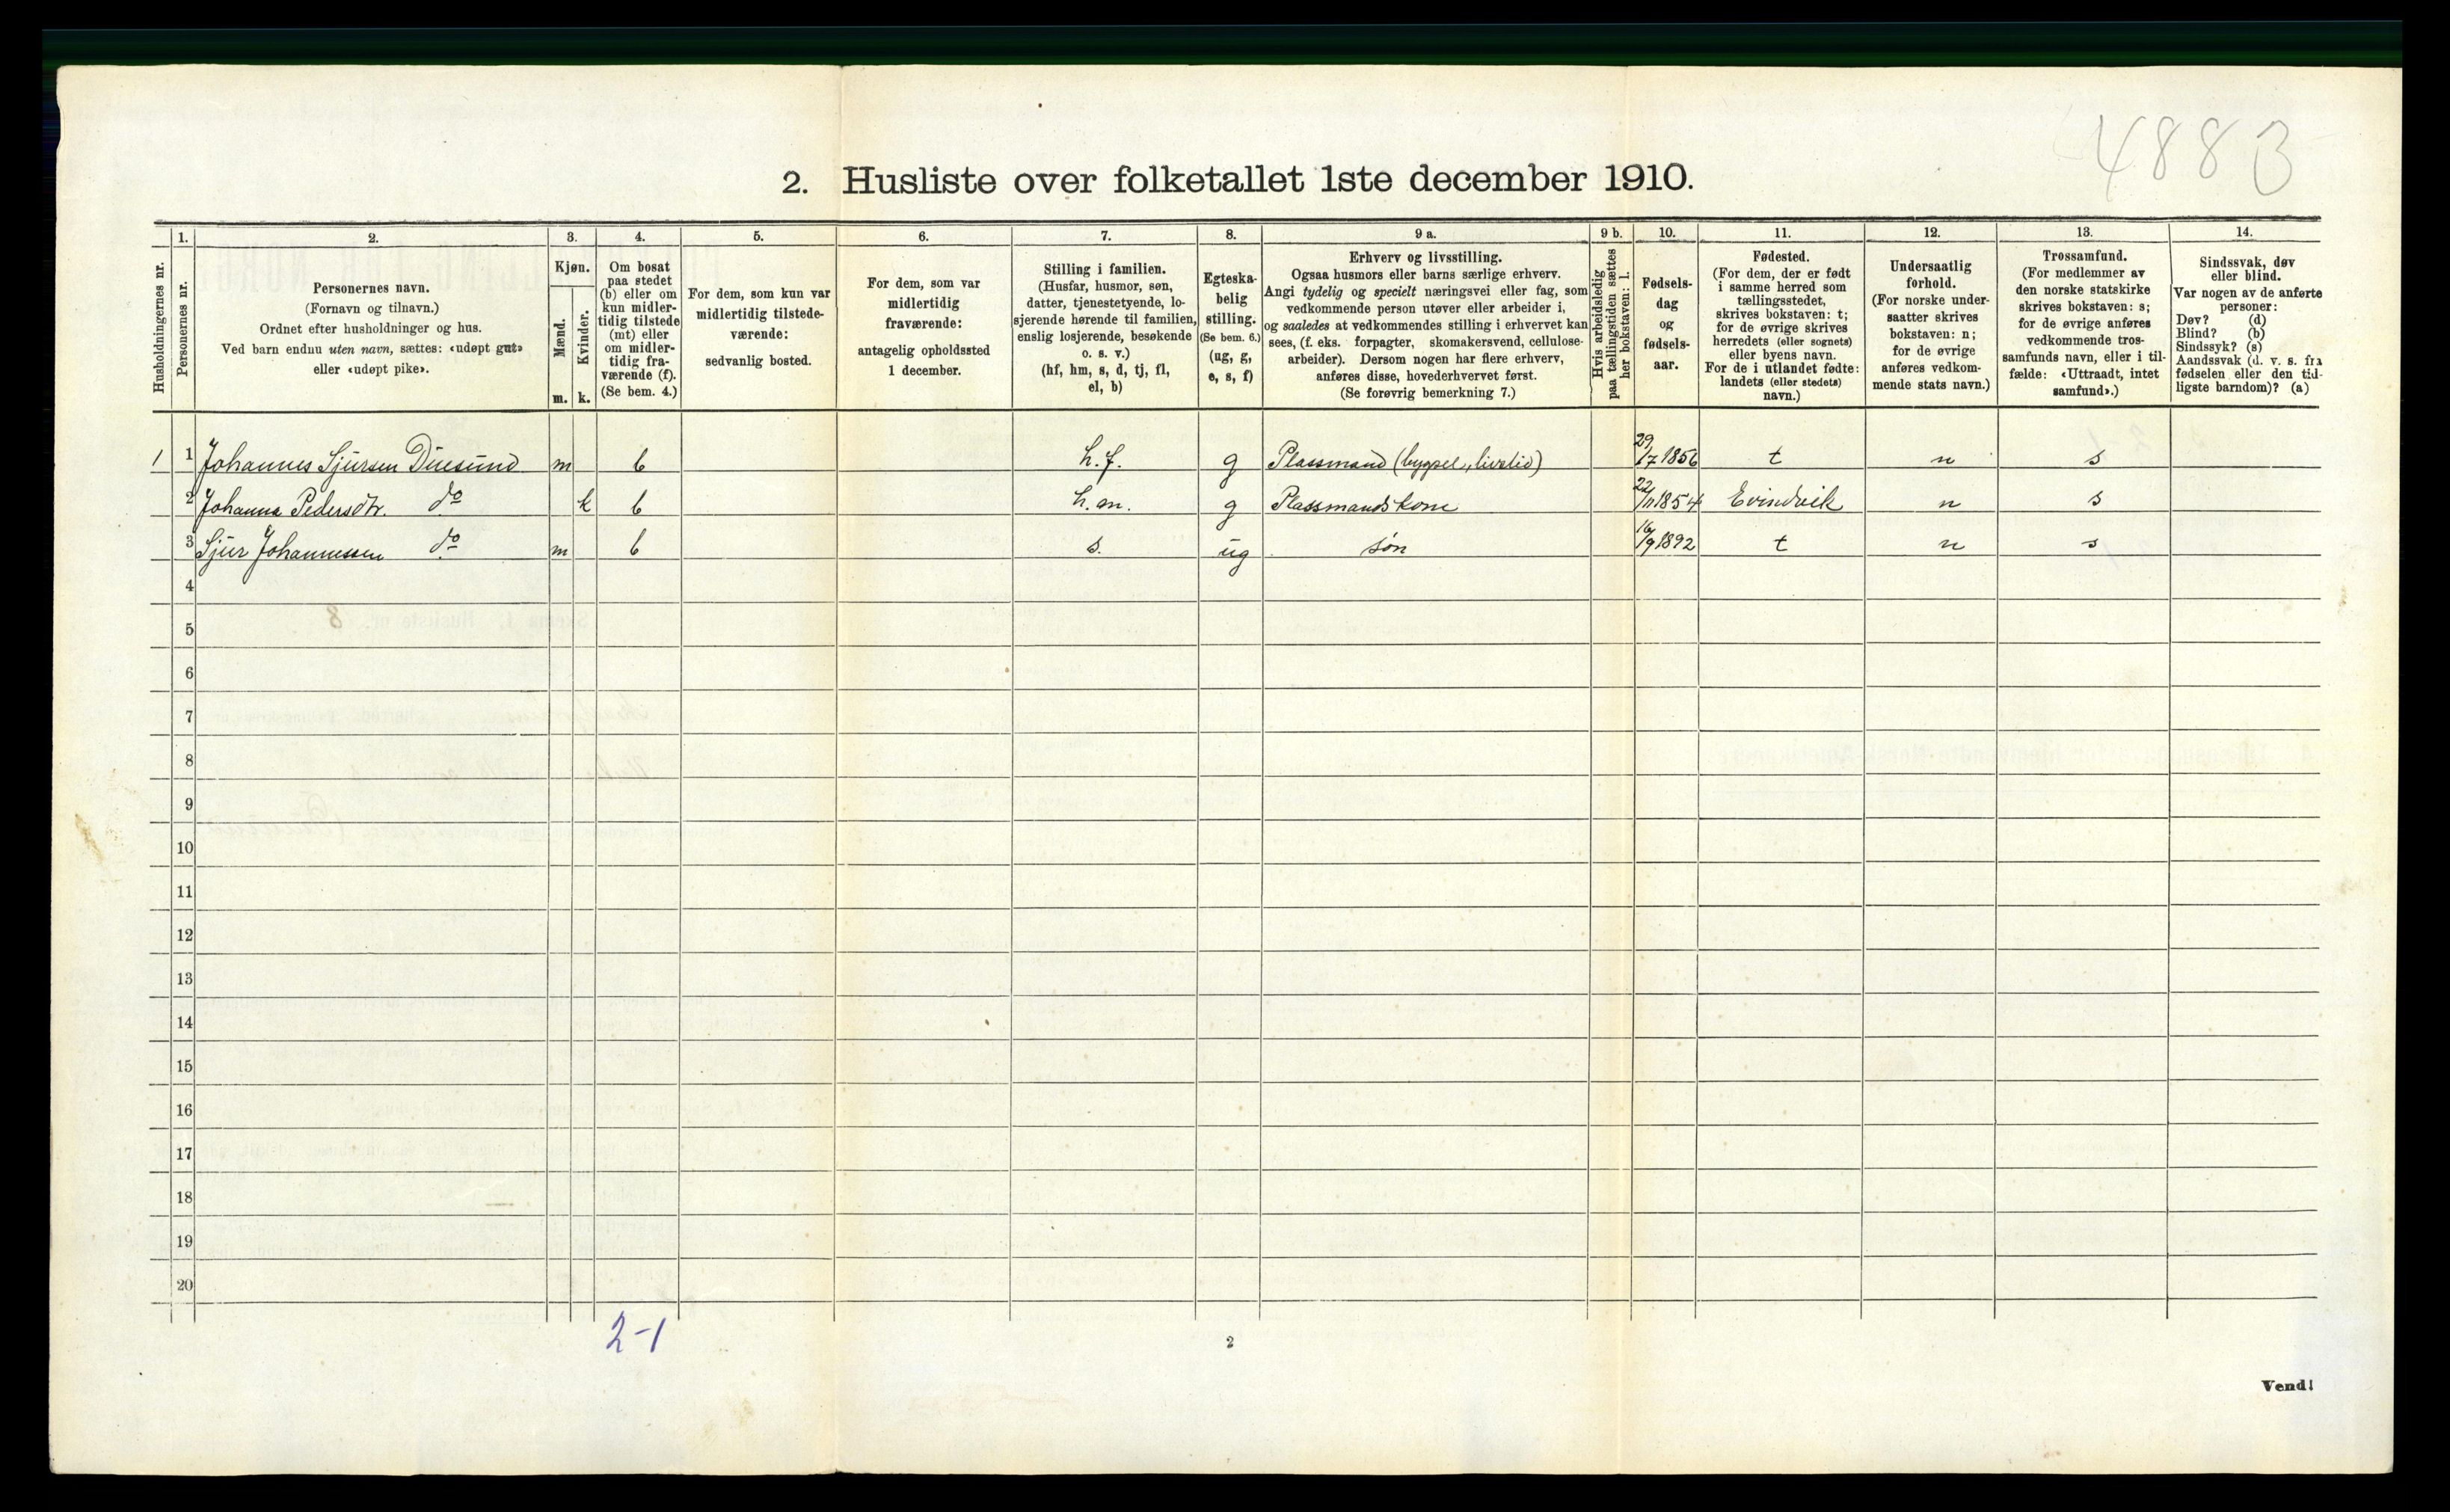 4883
2. Husliste over folketallet 1ste december 1910.
Husholdningernes nr.
1.
Personernes nr.
2.
Personernes navn.
(Fornavn og tilnavn.)
Ordnet efter husholdninger og hus.
Ved barn endnu uten navn, sættes: «udøpt gut»
eller «udøpt pike».
3.
Kjøn.
Mænd.
Kvinder.
m. k.
4.
Om bosat
paa stedet
(b) eller om
kun midler-
tidig tilstede
(mt) eller
om midler-
tidig fra-
værende (f).
(Se bem. 4.)
5.
For dem, som kun var
midlertidig tilstede-
værende:
sedvanlig bosted.
6.
For dem, som var
midlertidig
fraværende:
antagelig opholdssted
1 december.
7.
Stilling i familien.
(Husfar, husmor, søn,
datter, tjenestetyende, lo-
sjerende hørende til familien,
enslig losjerende, besøkende
o. s. v.)
(hf, hm, s, d, tj, fl,
el, b)
8.
Egteska-
belig
stilling.
(Se bem. 6.)
(ug, g,
e, s, f)
9 a.
Erhverv og livsstilling.
Ogsaa husmors eller barns særlige erhverv.
Angi tydelig og specielt næringsvei eller fag, som
vedkommende person utøver eller arbeider i,
og saaledes at vedkommendes stilling i erhvervet kan
sees, (f. eks. forpagter, skomakersvend, cellulose-
arbeider). Dersom nogen har flere erhverv,
anføres disse, hovederhvervet først.
(Se forøvrig bemerkning 7.)
9 b.
Hvis arbeidsledig
paa tællingstiden sættes
her bokstaven: l.
10.
Fødsels-
dag
og
fødsels-
aar.
11.
Fødested.
(For dem, der er født
i samme herred som
tællingsstedet,
skrives bokstaven: t;
for de øvrige skrives
herredets (eller sognets)
eller byens navn.
For de i utlandet fødte:
landets (eller stedets)
navn.)
12.
Undersaatlig
forhold.
(For norske under-
saatter skrives
bokstaven: n;
for de øvrige
anføres vedkom-
mende stats navn.)
13.
Trossamfund.
(For medlemmer av
den norske statskirke
skrives bokstaven: s;
for de øvrige anføres
vedkommende tros-
samfunds navn, eller i til-
fælde: «Uttraadt, intet
samfund».)
14.
Sindssvak, døv
eller blind.
Var nogen av de anførte
personer:
Døv? (d)
Blind? (b)
Sindssyk? (s)
Aandssvak (d. v. s. fra
fødselen eller den tid-
ligste barndom)? (a)
1 1 Johannes Sjursen Duesund m b h.f. g Plassmand (bygsel, livstid) 29/7 1856 t n s
2 Johanna Pedersdtr. do k b h.m. g Plassmandskone 22/11 1854 Evindvik n s
3 Sjur Johannessen do m b s. ug søn 16/9 1892 t n s
4
5
6
7
8
9
10
11
12
13
14
15
16
17
18
19
20
2-1
2
Vend!